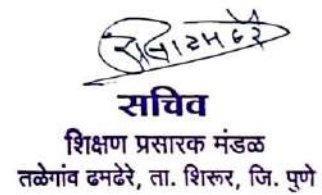 सचिव
शिक्षण प्रसारक मंडळ
तळेगांव ढमढेरे, ता. शिरूर, जि. पुणे